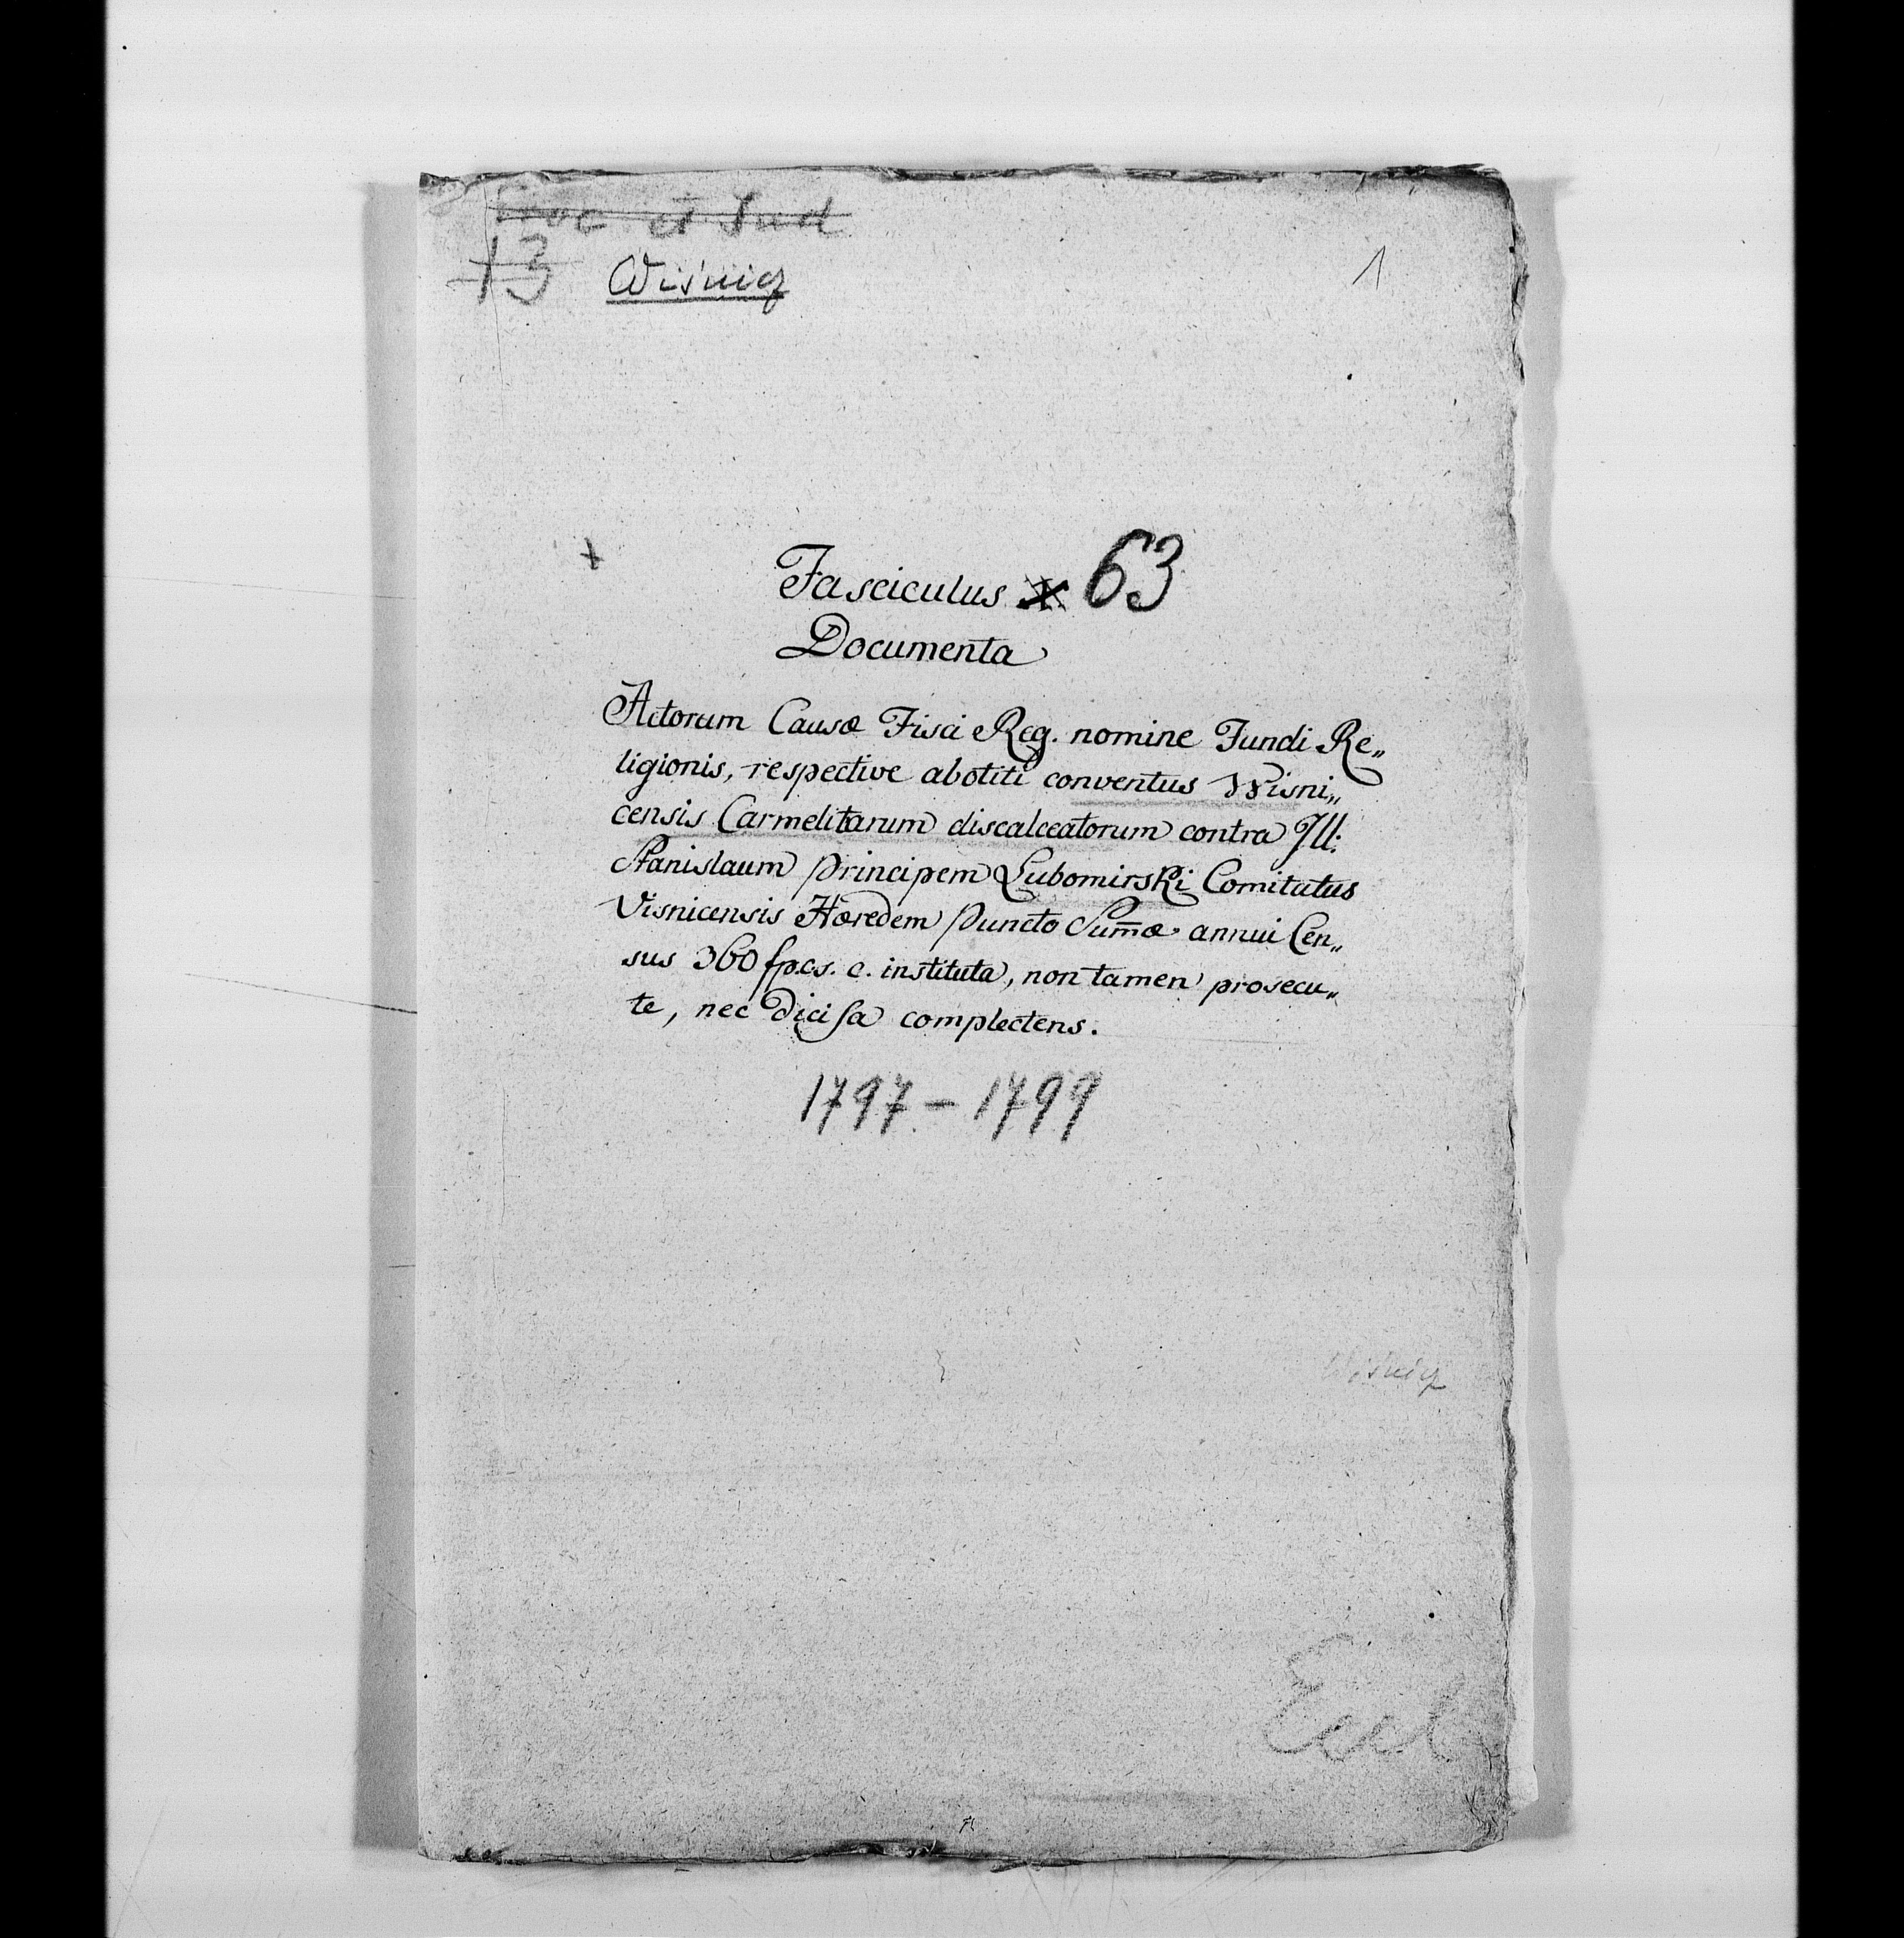 et Jud
13 Wiśnicz
1
+
Fasciculus 63
Documenta
Actorum Causæ Fisci Reg. nomine Fundi Re„
ligionis, respective abotiti conventus Wisni„
censis Carmelitarum discalceatorum contra Ill:
Stanislaum Principem Lubomirski Comitatus
Visnicensis Hæredem Puncto Sum̄æ annui Cen„
sus 360 fp.cs. c. instituta, non tamen prosecu„
te, nec Dicisa complectens.
1797 - 1799
Wiśnicz
Eccl